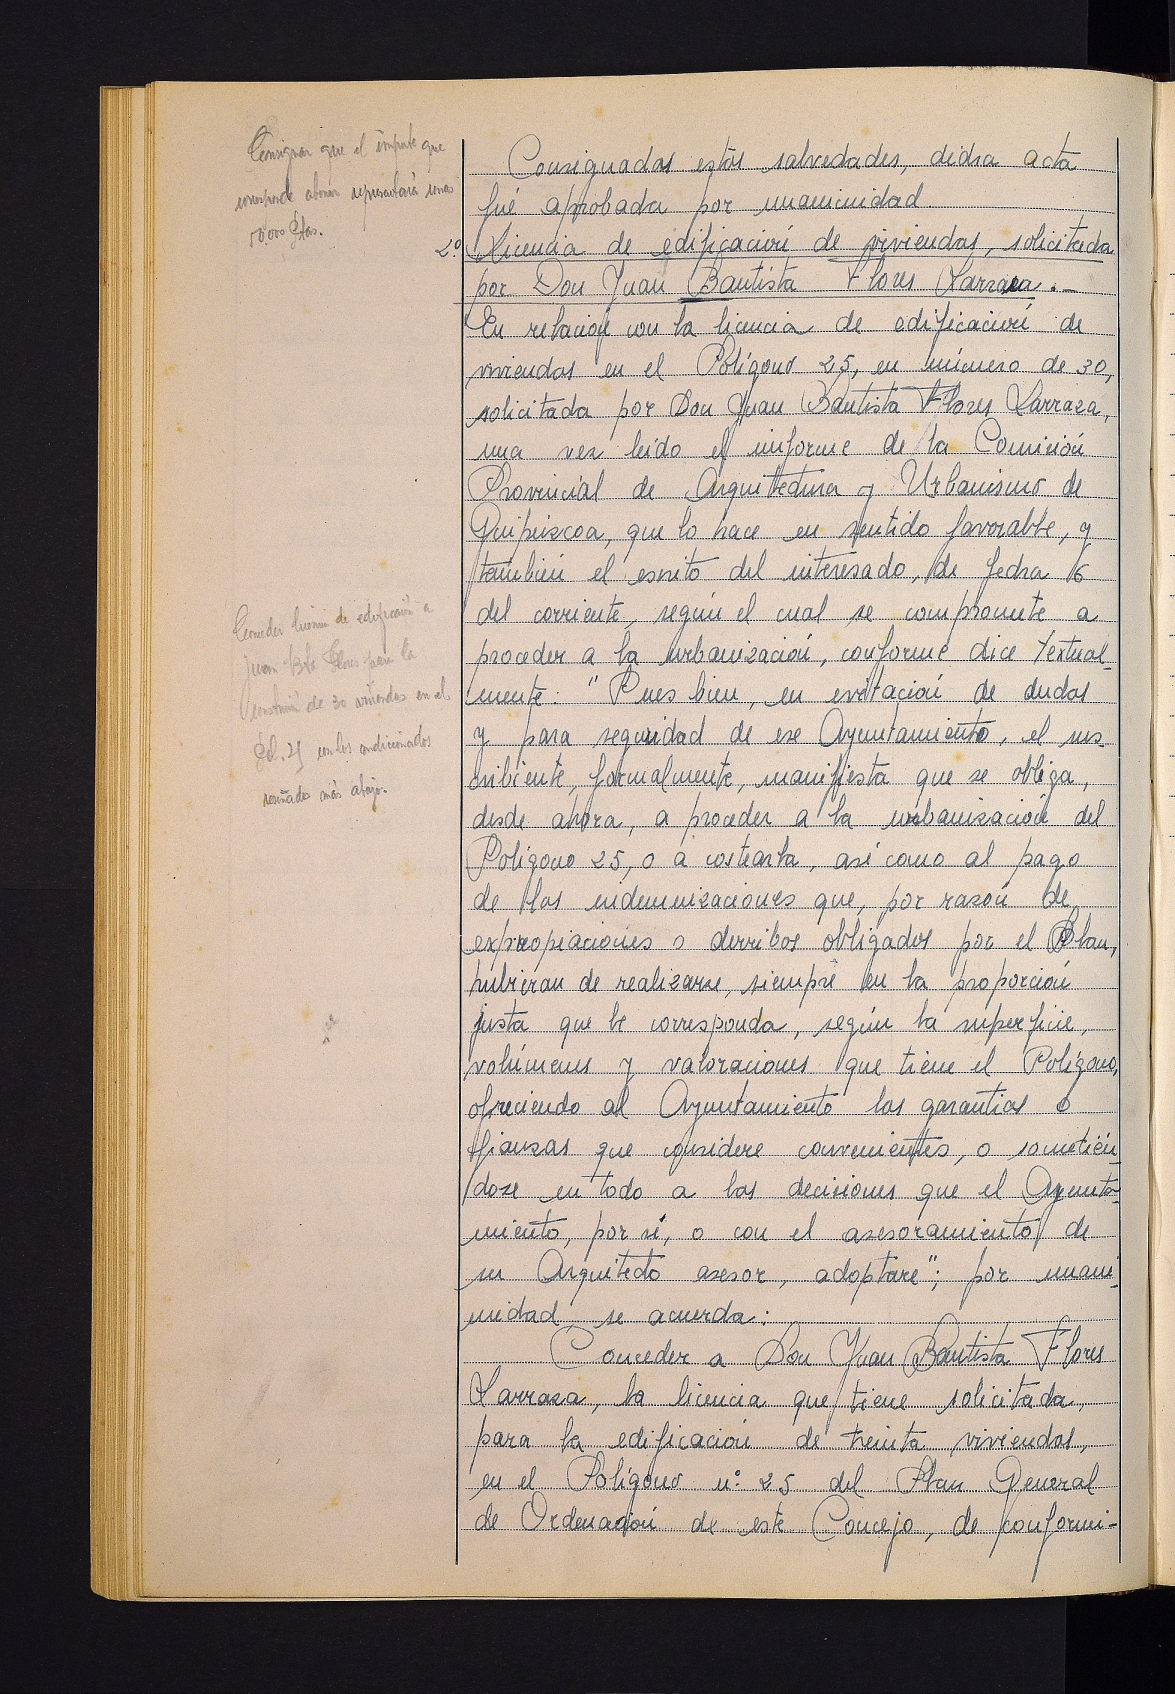 Consignar que el importe que
corresponde abonar representará unas
50.000 Ptas.
Consignadas estas salvedades, dicha acta
fué aprobada por unanimidad.
2º. Licencia de edificación de viviendas, solicitada
por Don Juan Bautista Flores Larraza.-
En relación con la licencia de edificación de
viviendas en el Polígono 25, en número de 30,
solicitada por Don Juan Bautista Flores Larraza,
una vez leído el informe de la Comisión
Provincial de Arquitectura y Urbanismo de
Guipúzcoa, que lo hace en sentido favorable, y
también el escrito del interesado, de fecha 16
del corriente, según el cual se compromete a
proceder a la urbanización, conforme dice textual-
mente: "Pues bien, en evitación de dudas
y para seguridad de ese Ayuntamiento, el sus-
cribiente, formalmente, manifiesta que se obliga,
desde ahora, a proceder a la urbanización del
Polígono 25, o a costearla, así como al pago
de las indemnizaciones que, por razón de
expropiaciones o derribos obligados por el Plan,
hubieran de realizarse, siempre en la proporción
justa que le corresponda, según la superficie,
volúmenes y valoraciones que tiene el Polígono,
ofreciendo al Ayuntamiento las garantías o
fianzas que considere convenientes, o sometién-
dose en todo a las decisiones que el Ayunta-
miento, por sí, o con el asesoramiento de
su Arquitecto asesor, adoptare"; por unani-
midad, se acuerda:
Conceder a Don Juan Bautista Flores
Larraza, la licencia que tiene solicitada,
para la edificación de treinta viviendas,
en el Polígono nº 25 del Plan General
de Ordenación de este Concejo, de conformi-
Conceder licencia de edificación a
Juan Bta. Flores para la
construcción de 30 viviendas en el
Pol. 25 con los condicionados
reseñados más abajo.